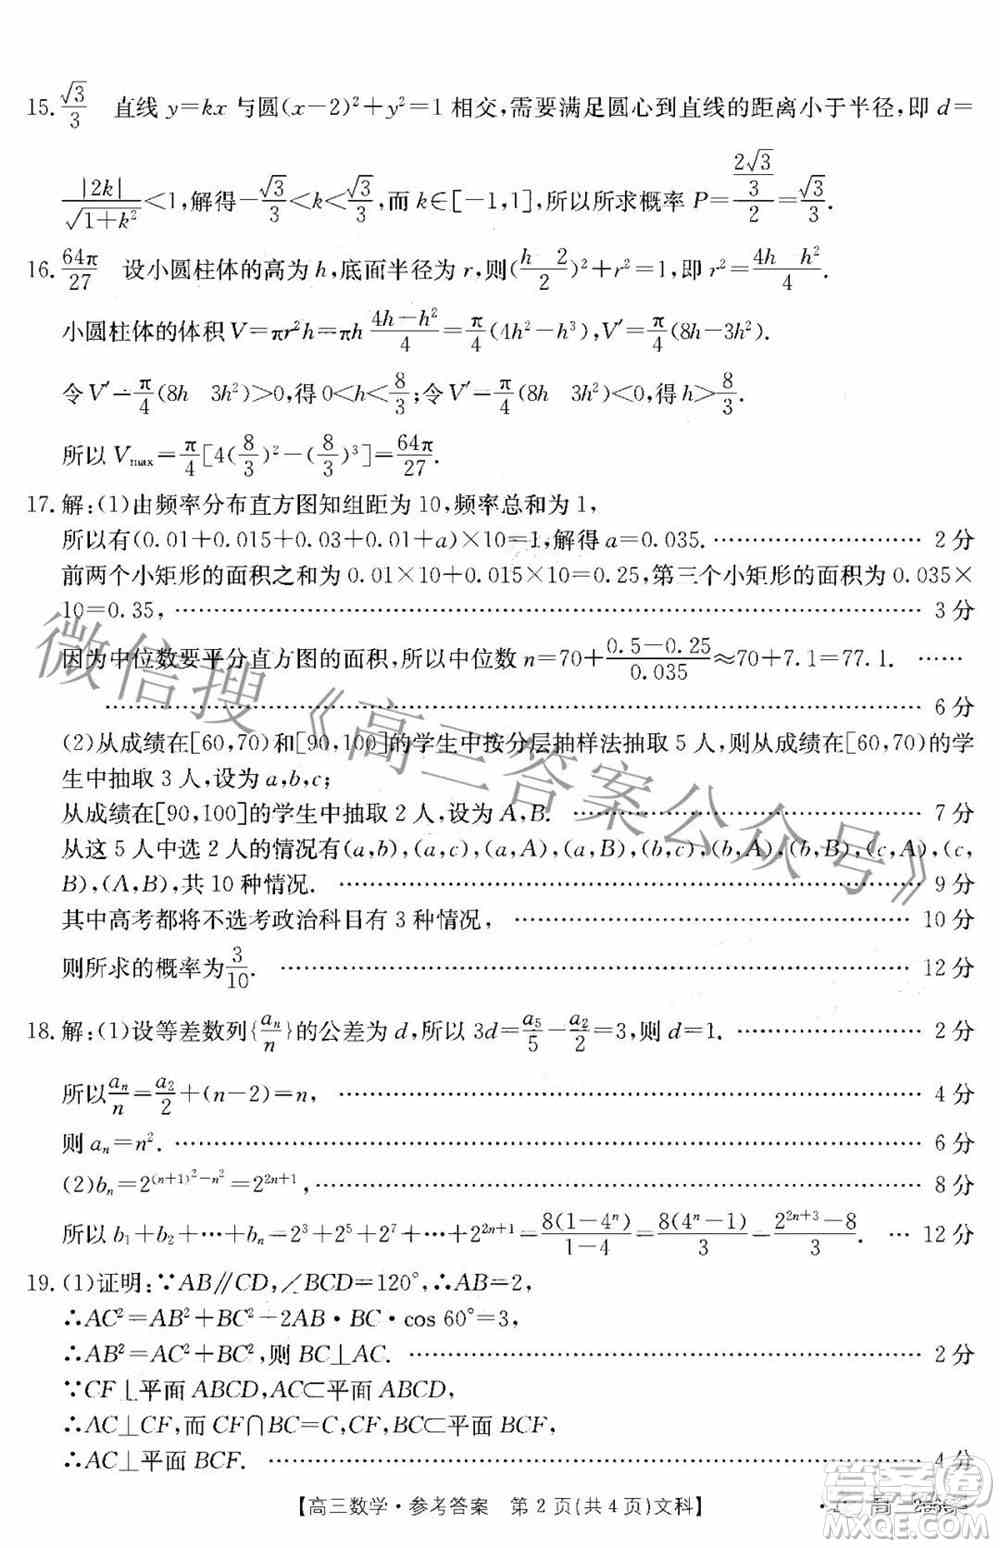 15. √3/3　直线 y=kx 与圆(x-2)²+y²=1 相交,需要满足圆心到直线的距离小于半径,即 d=
|2k|/√(1+k²)<1,解得-√3/3<k<√3/3,而 k∈[-1,1],所以所求概率 P=(2√3/3)/2=√3/3.
16. 64π/27　设小圆柱体的高为 h,底面半径为 r,则(h 2/2)²+r²=1,即 r²=(4h h²)/4.
小圆柱体的体积 V=πr²h=πh (4h-h²)/4=π/4(4h²-h³),V′=π/4(8h-3h²).
令 V′=π/4(8h 3h²)>0,得 0<h<8/3;令 V′=π/4(8h 3h²)<0,得 h>8/3.
所以 Vmax=π/4[4(8/3)²-(8/3)³]=64π/27.
17. 解:(1)由频率分布直方图知组距为 10,频率总和为 1,
所以有(0.01+0.015+0.03+0.01+a)×10=1,解得 a=0.035. ………… 2 分
前两个小矩形的面积之和为 0.01×10+0.015×10=0.25,第三个小矩形的面积为 0.035×
10=0.35, ………… 3 分
因为中位数要平分直方图的面积,所以中位数 n=70+(0.5-0.25)/0.035≈70+7.1=77.1. ……
………… 6 分
(2)从成绩在[60,70)和[90,100]的学生中按分层抽样法抽取 5 人,则从成绩在[60,70)的学
生中抽取 3 人,设为 a,b,c;
从成绩在[90,100]的学生中抽取 2 人,设为 A,B. ………… 7 分
从这 5 人中选 2 人的情况有(a,b),(a,c),(a,A),(a,B),(b,c),(b,A),(b,B),(c,A),(c,
B),(A,B),共 10 种情况. ………… 9 分
其中高考都将不选考政治科目有 3 种情况, ………… 10 分
则所求的概率为3/10. ………… 12 分
18. 解:(1)设等差数列{aₙ/n}的公差为 d,所以 3d=a₅/5-a₂/2=3,则 d=1. ………… 2 分
所以aₙ/n=a₂/2+(n-2)=n, ………… 4 分
则 aₙ=n². ………… 6 分
(2)bₙ=2^((n+1)²-n²)=2^(2n+1), ………… 8 分
所以 b₁+b₂+…+bₙ=2³+2⁵+2⁷+…+2^(2n+1)=8(1-4ⁿ)/(1-4)=8(4ⁿ-1)/3=(2^(2n+3)-8)/3. … 12 分
19. (1)证明:∵AB∥CD,∠BCD=120°,∴AB=2,
∴AC²=AB²+BC²-2AB·BC·cos 60°=3,
∴AB²=AC²+BC²,则 BC⊥AC. ………… 2 分
∵CF⊥平面 ABCD,AC⊂平面 ABCD,
∴AC⊥CF,而 CF∩BC=C,CF,BC⊂平面 BCF,
∴AC⊥平面 BCF. ………… 4 分
【高三数学·参考答案　第 2 页(共 4 页)文科】
微信搜《高三答案公众号》